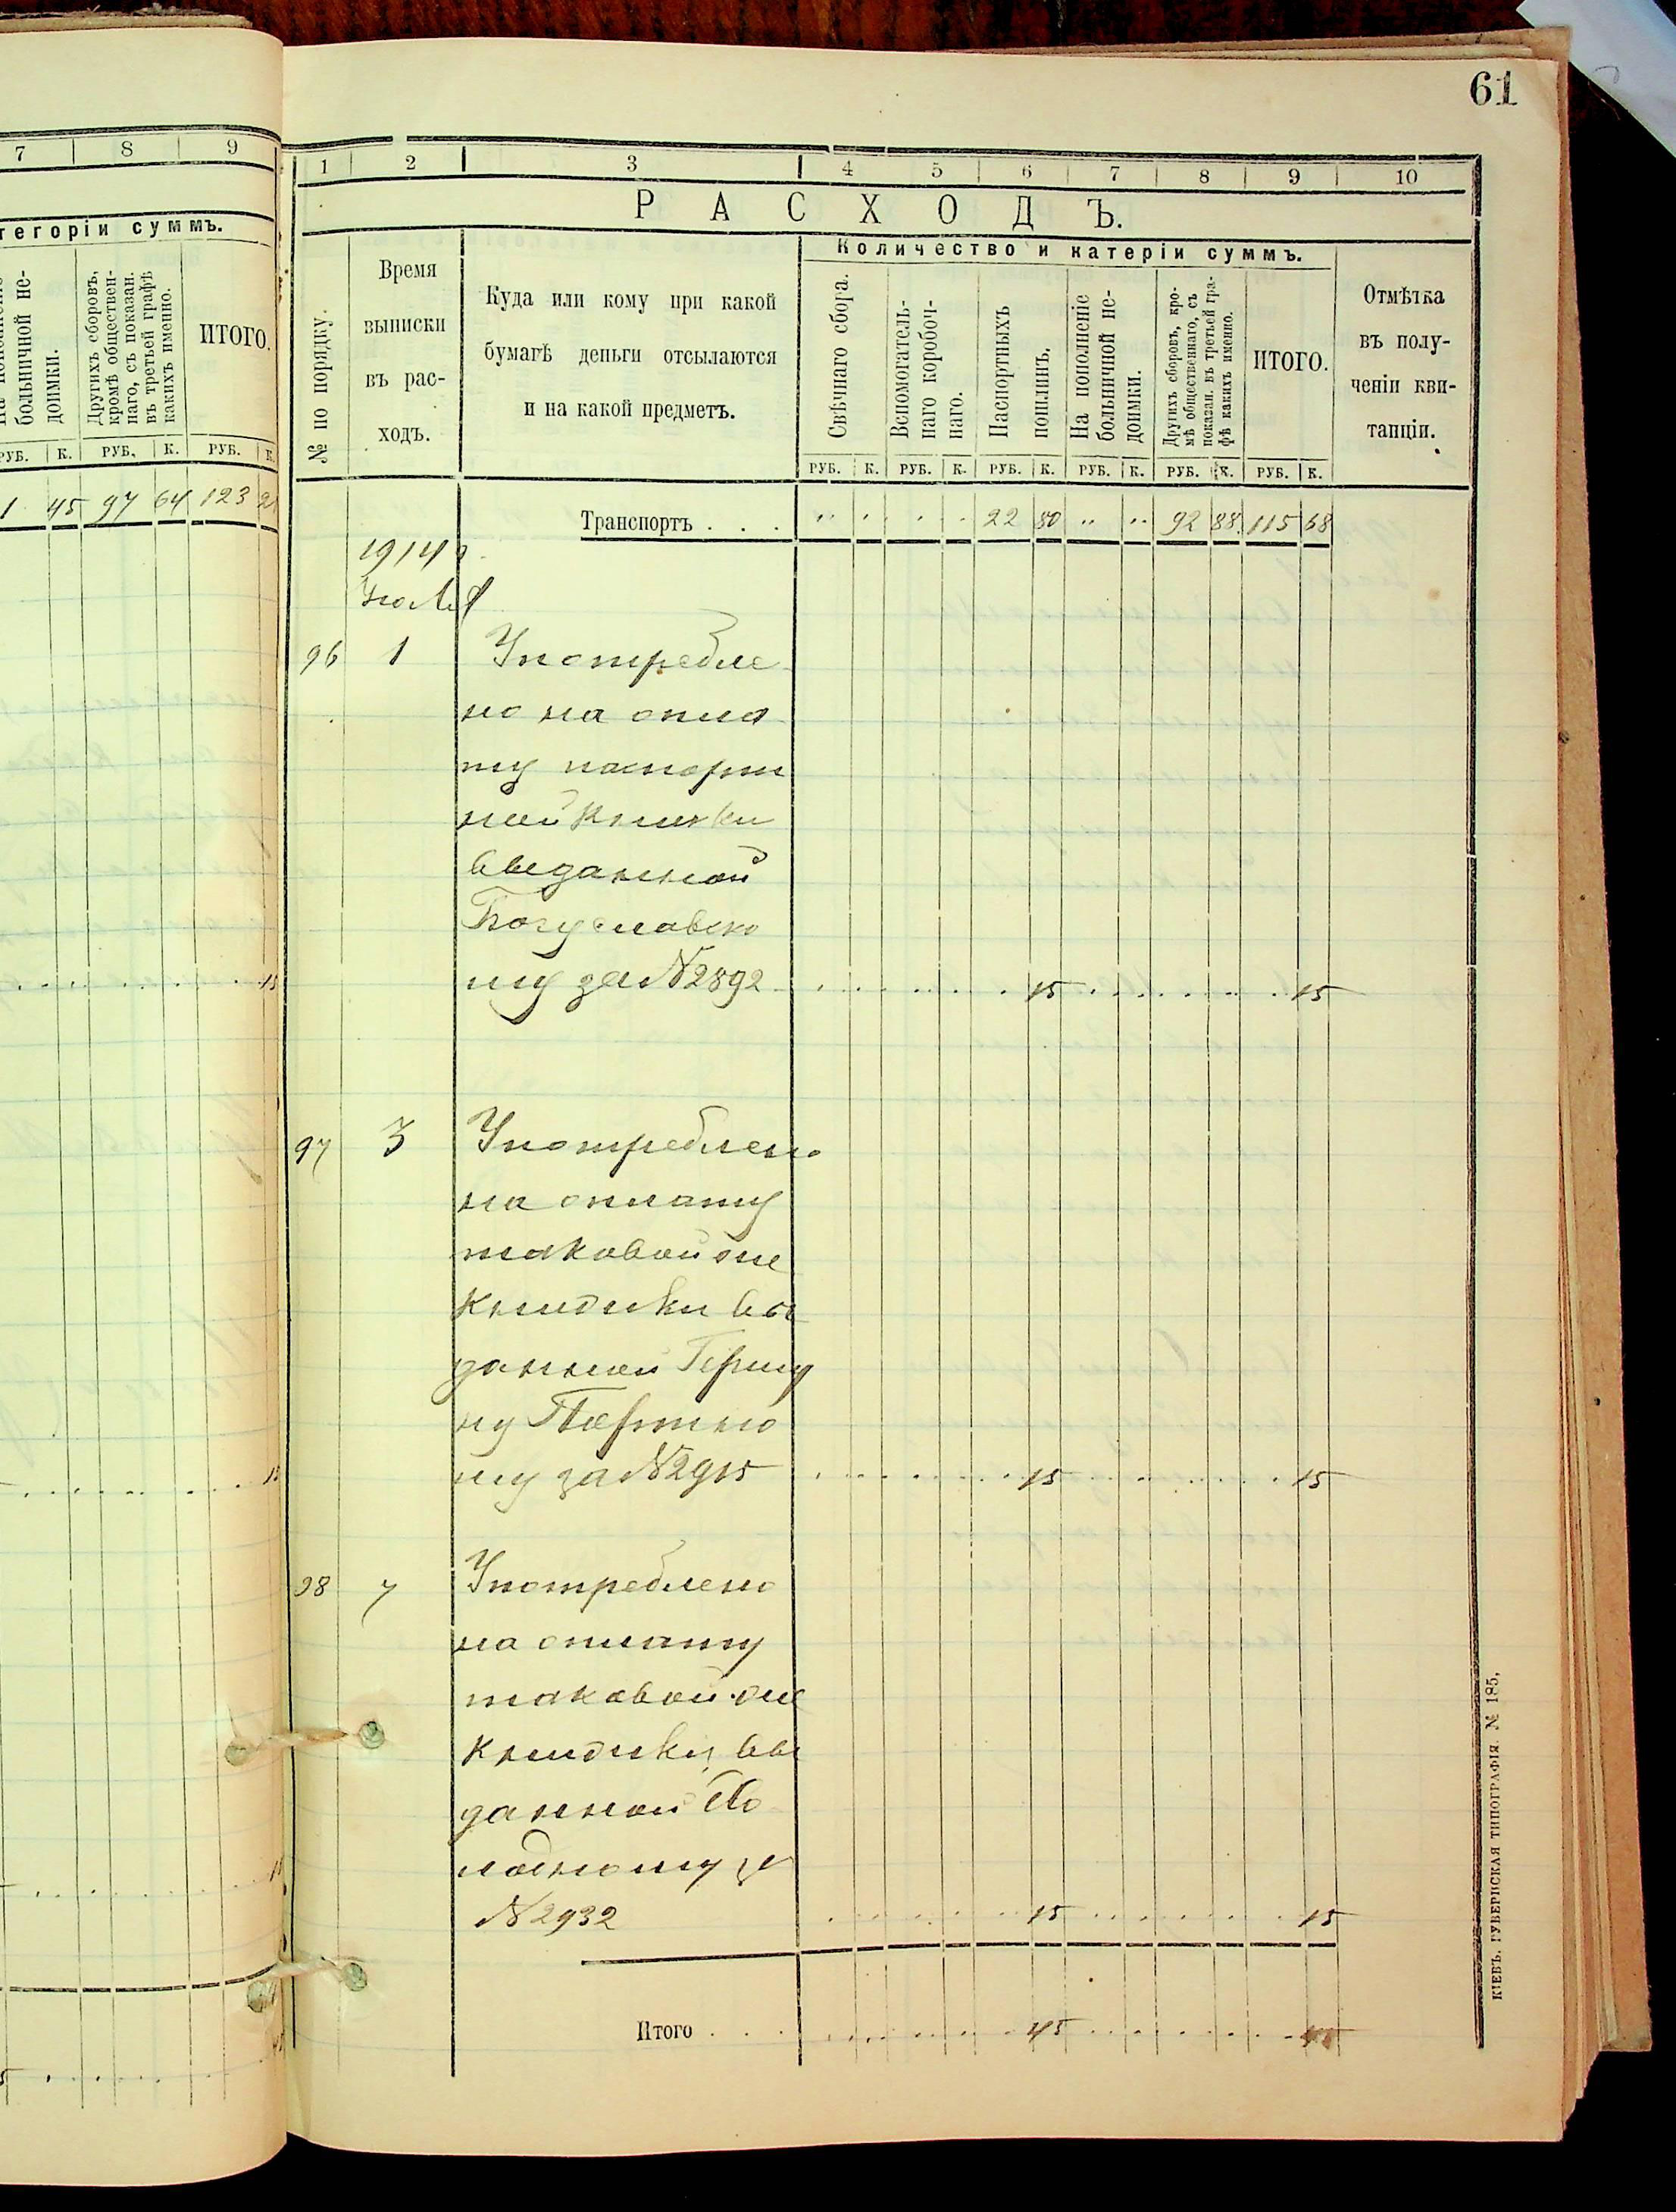 61
7 8 9
тегоріи суммъ.
больничной не-
доимки.
Другихъ сборовъ,
кромѣ обществен-
наго, съ показан.
въ третьей графѣ
какихъ именно.
ИТОГО.
РУБ. К. РУБ. К. РУБ. К.
1 45 97 64 123
1 2 3 4 5 6 7 8 9 10
РАСХОДЪ.
Количество и катеріи суммъ.
№ по порядку.
Время
выписки
въ рас-
ходъ.
Куда или кому при какой
бумагѣ деньги отсылаются
и на какой предметъ.
Свѣчнаго сбора.
Вспомогатель-
наго коробоч-
наго.
Паспортныхъ
пошлинъ.
На пополненіе
больничной не-
доимки.
Другихъ сборовъ, кро-
мѣ общественнаго, съ
показан. въ третьей гра-
фѣ какихъ именно.
ИТОГО.
Отмѣтка
въ полу-
ченіи кви-
танціи.
РУБ. К. РУБ. К. РУБ. К. РУБ. К. РУБ. К. РУБ. К.
Транспортъ . . . 22 80 " " 92 88 115 68
1914 г.
96 1 Употребле
но на опла
ту паспорт
ной книжки
выданной
Богуславско
му за № 2892 15 15
97 3 Употреблено
на оплату
таковой же
книжки вы
данной
му за № 2915 15 15
98 7 Употреблено
на оплату
таковой же
книжки, вы
данной
за
№ 2932 15 15
Итого . . . 45 45
КІЕВЪ. ГУБЕРНСКАЯ ТИПОГРАФІЯ. № 185.